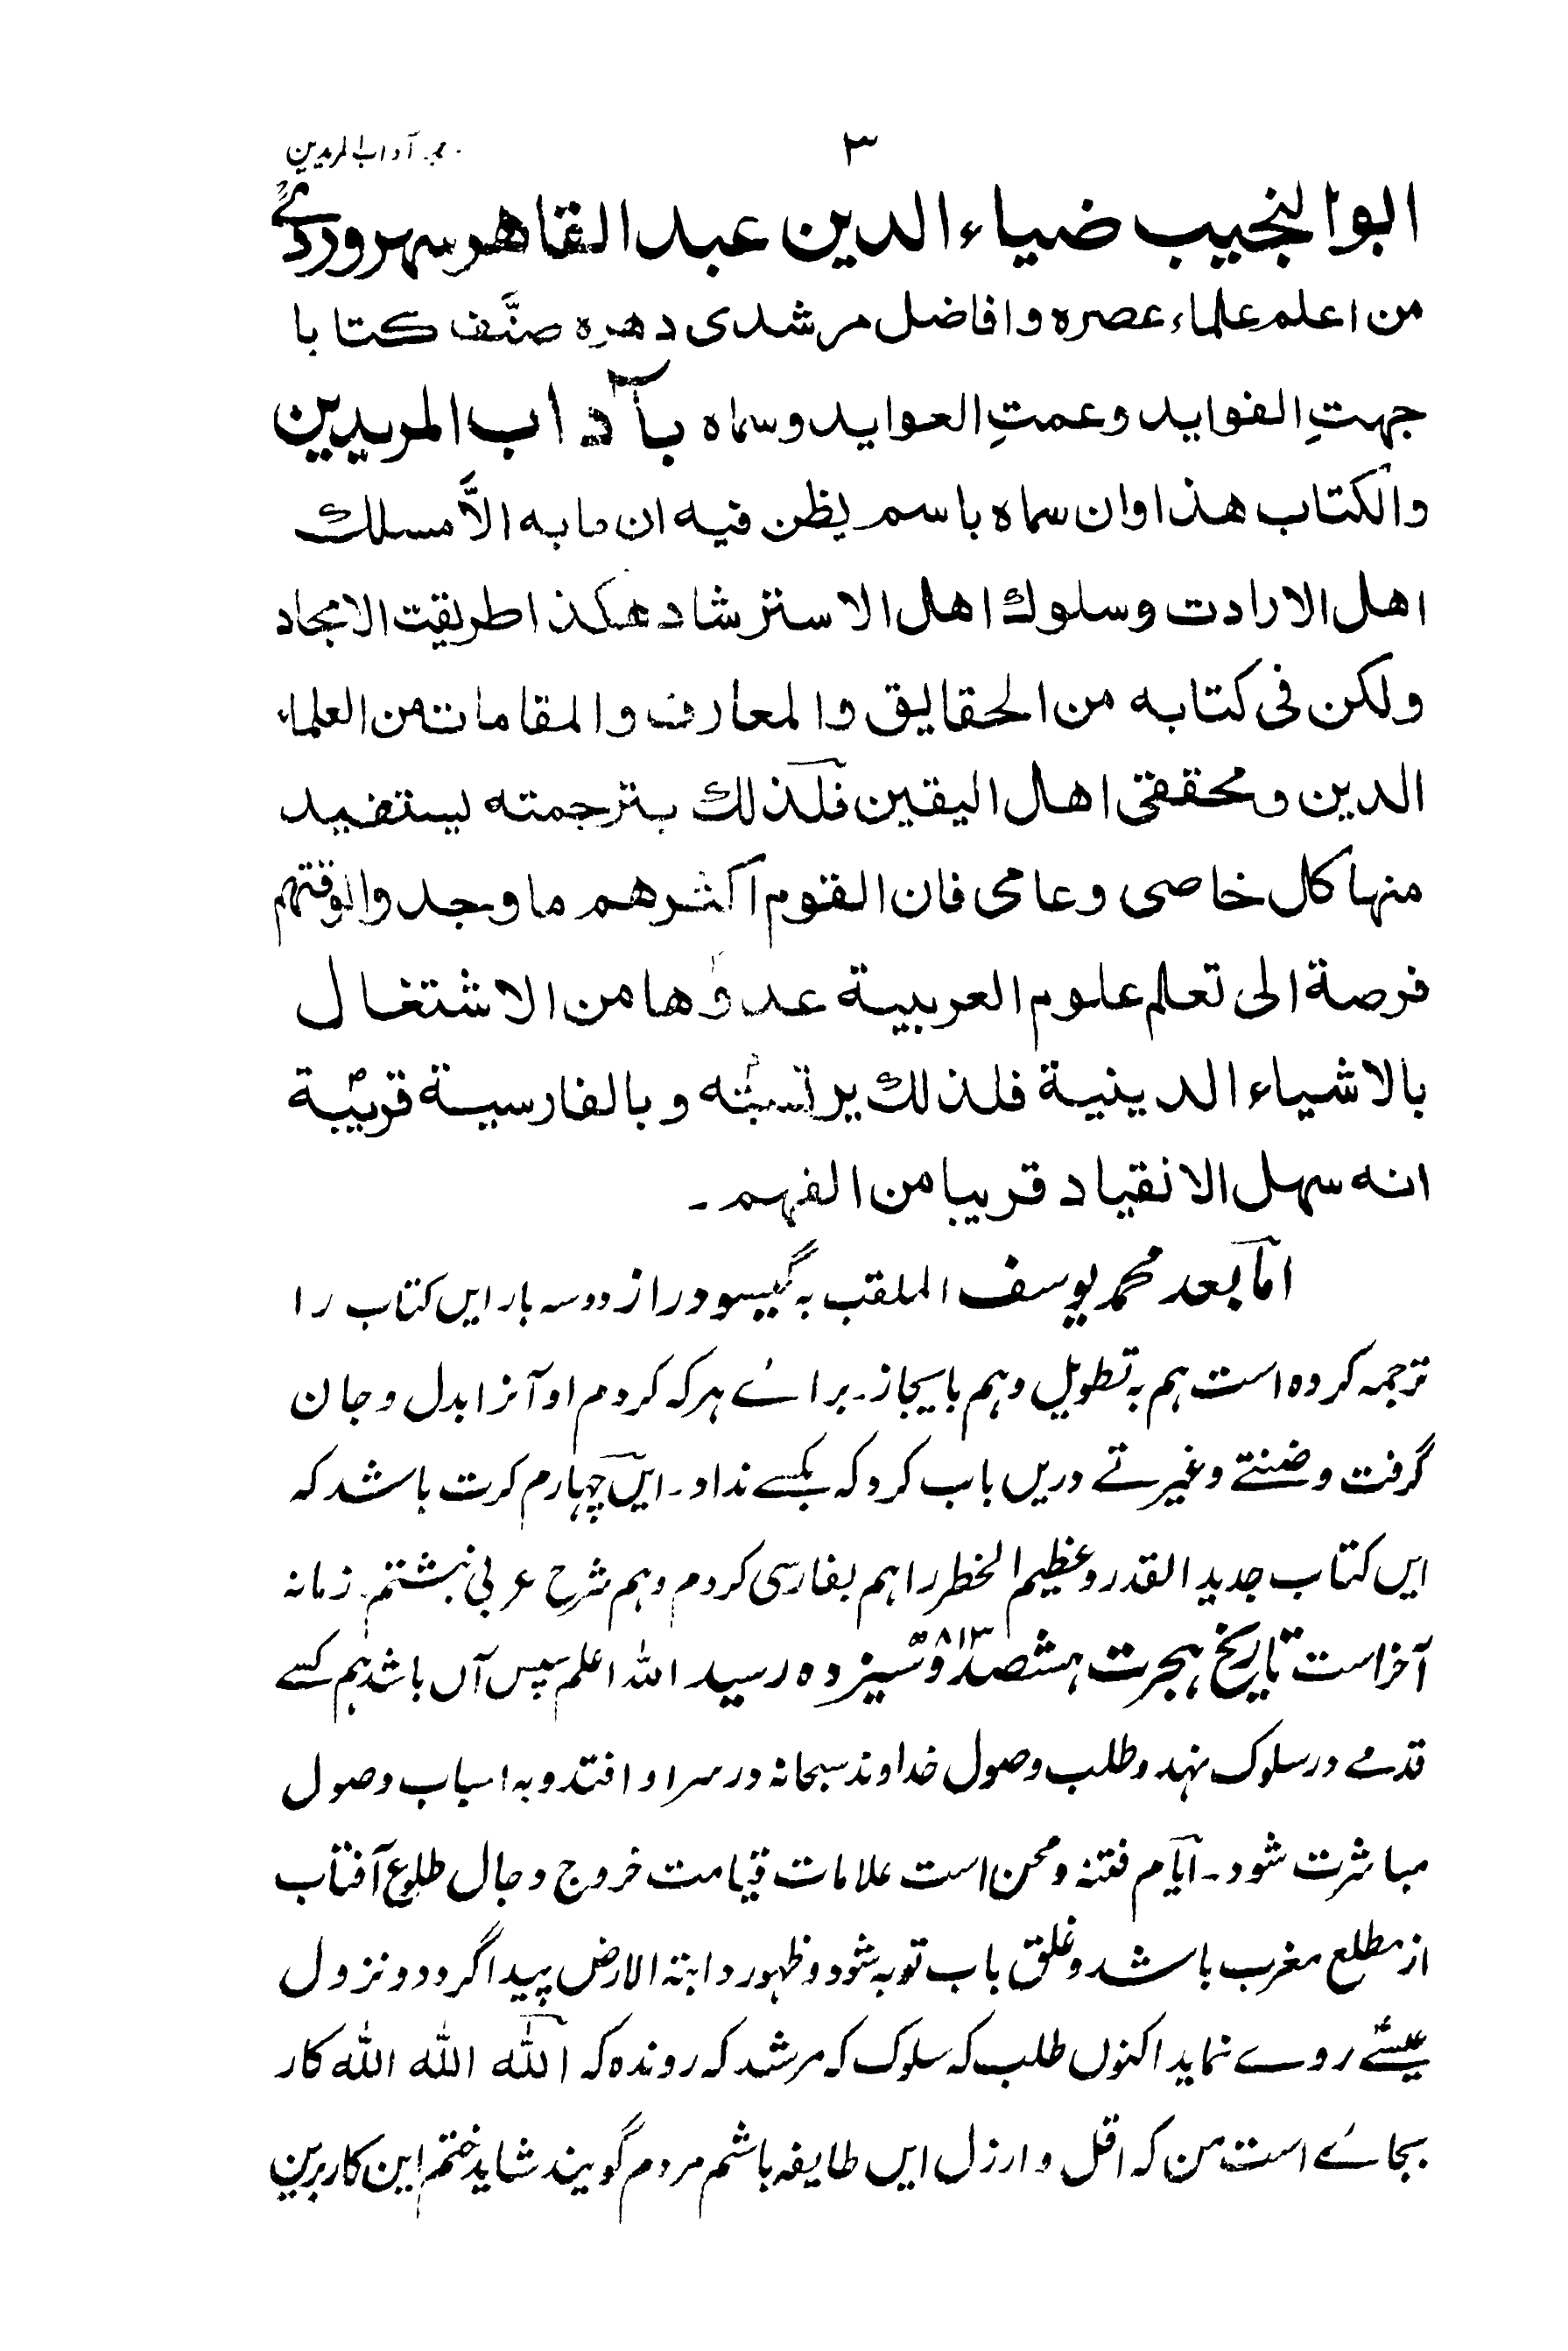 ۳ ترجمہ آداب المریدین
ابوالنجیب ضیاء الدین عبد القاھر سہروردیؒ
من اعلم علماء عصرہ وافاضل مرشدی دھرہ صنَّف کتابا
جھتِ الفواید وعمتِ العواید وسماہ بآداب المریدین
والکتاب ھذا وان سماہ باسم یظن فیہ ان مابہ الاَّ مسلك
اھل الارادت وسلوك اھل الاسترشاد ھکذا طریقت الامجاد
ولکن فی کتابہ من الحقایق والمعارف والمقامات من العلماء
الدین ومحققی اھل الیقین فلذلك بترجمتہ یستفید
منہا کل خاصی وعامی فان القوم اکثرھم ما وجدوا لوقتھم
فرصۃ الی تعلم علوم العربیۃ عدوھا من الاشتغال
بالاشیاء الدینیۃ فلذلك وبالفارسیۃ
انہ سہل الانقیاد قریبا من الفہم۔
امّا بعد محمد یوسف الملقب بہ گیسودراز دوسہ بار ایں کتاب را
ترجمہ کردہ است ہم بہ تطویل وہم بایجاز۔ برائے ہرکہ کردم او آنرا بدل وجان
گرفت وضنتے وغیرتے دریں باب کردکہ بکسے نداد۔ ایں چہارم کرت باشد کہ
ایں کتاب جدید القدر وعظیم الخطر را ہم بفارسی کردم وہم شرح عربی نبشتم۔ زمانہ
آخر است تاریخ ہجرت ہشتصد وسیزدہ ۸۱۳ھ رسید اللہ اعلم سپس آں باشد ہم کسے
قدمے درسلوک نہد وطلب وصول خداوند سبحانہ درسر او افتد وبہ اسباب وصول
مباشرت شود۔ ایّام فتنہ ومحن است علامات قیامت خروج دجال طلوع آفتاب
از مطلع مغرب باشد وغلق باب توبہ شود وظہور دابتہ الارض پیدا گردد ونزول
عیسےٰ روے نماید اکنوں طلب کہ سلوک کہ مرشد کہ روندہ کہ اللہ اللہ اللہ کار
بجائے است من کہ اقل وارذل ایں طایفہ باشم مردم گویند شاید ختم این کار برین